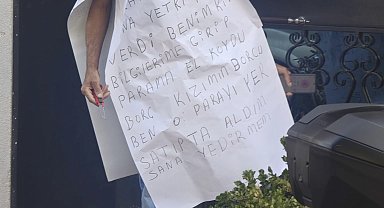 NA YETKİ
VERDİ BENİM Kİ
BİLGİLERİME GİRİP
PARAMA EL KOYDU
BORÇ KIZIMIN BORCU
BEN O PARAYI YEK
SATIPTA ALDIM
SANA YEDİRMEM